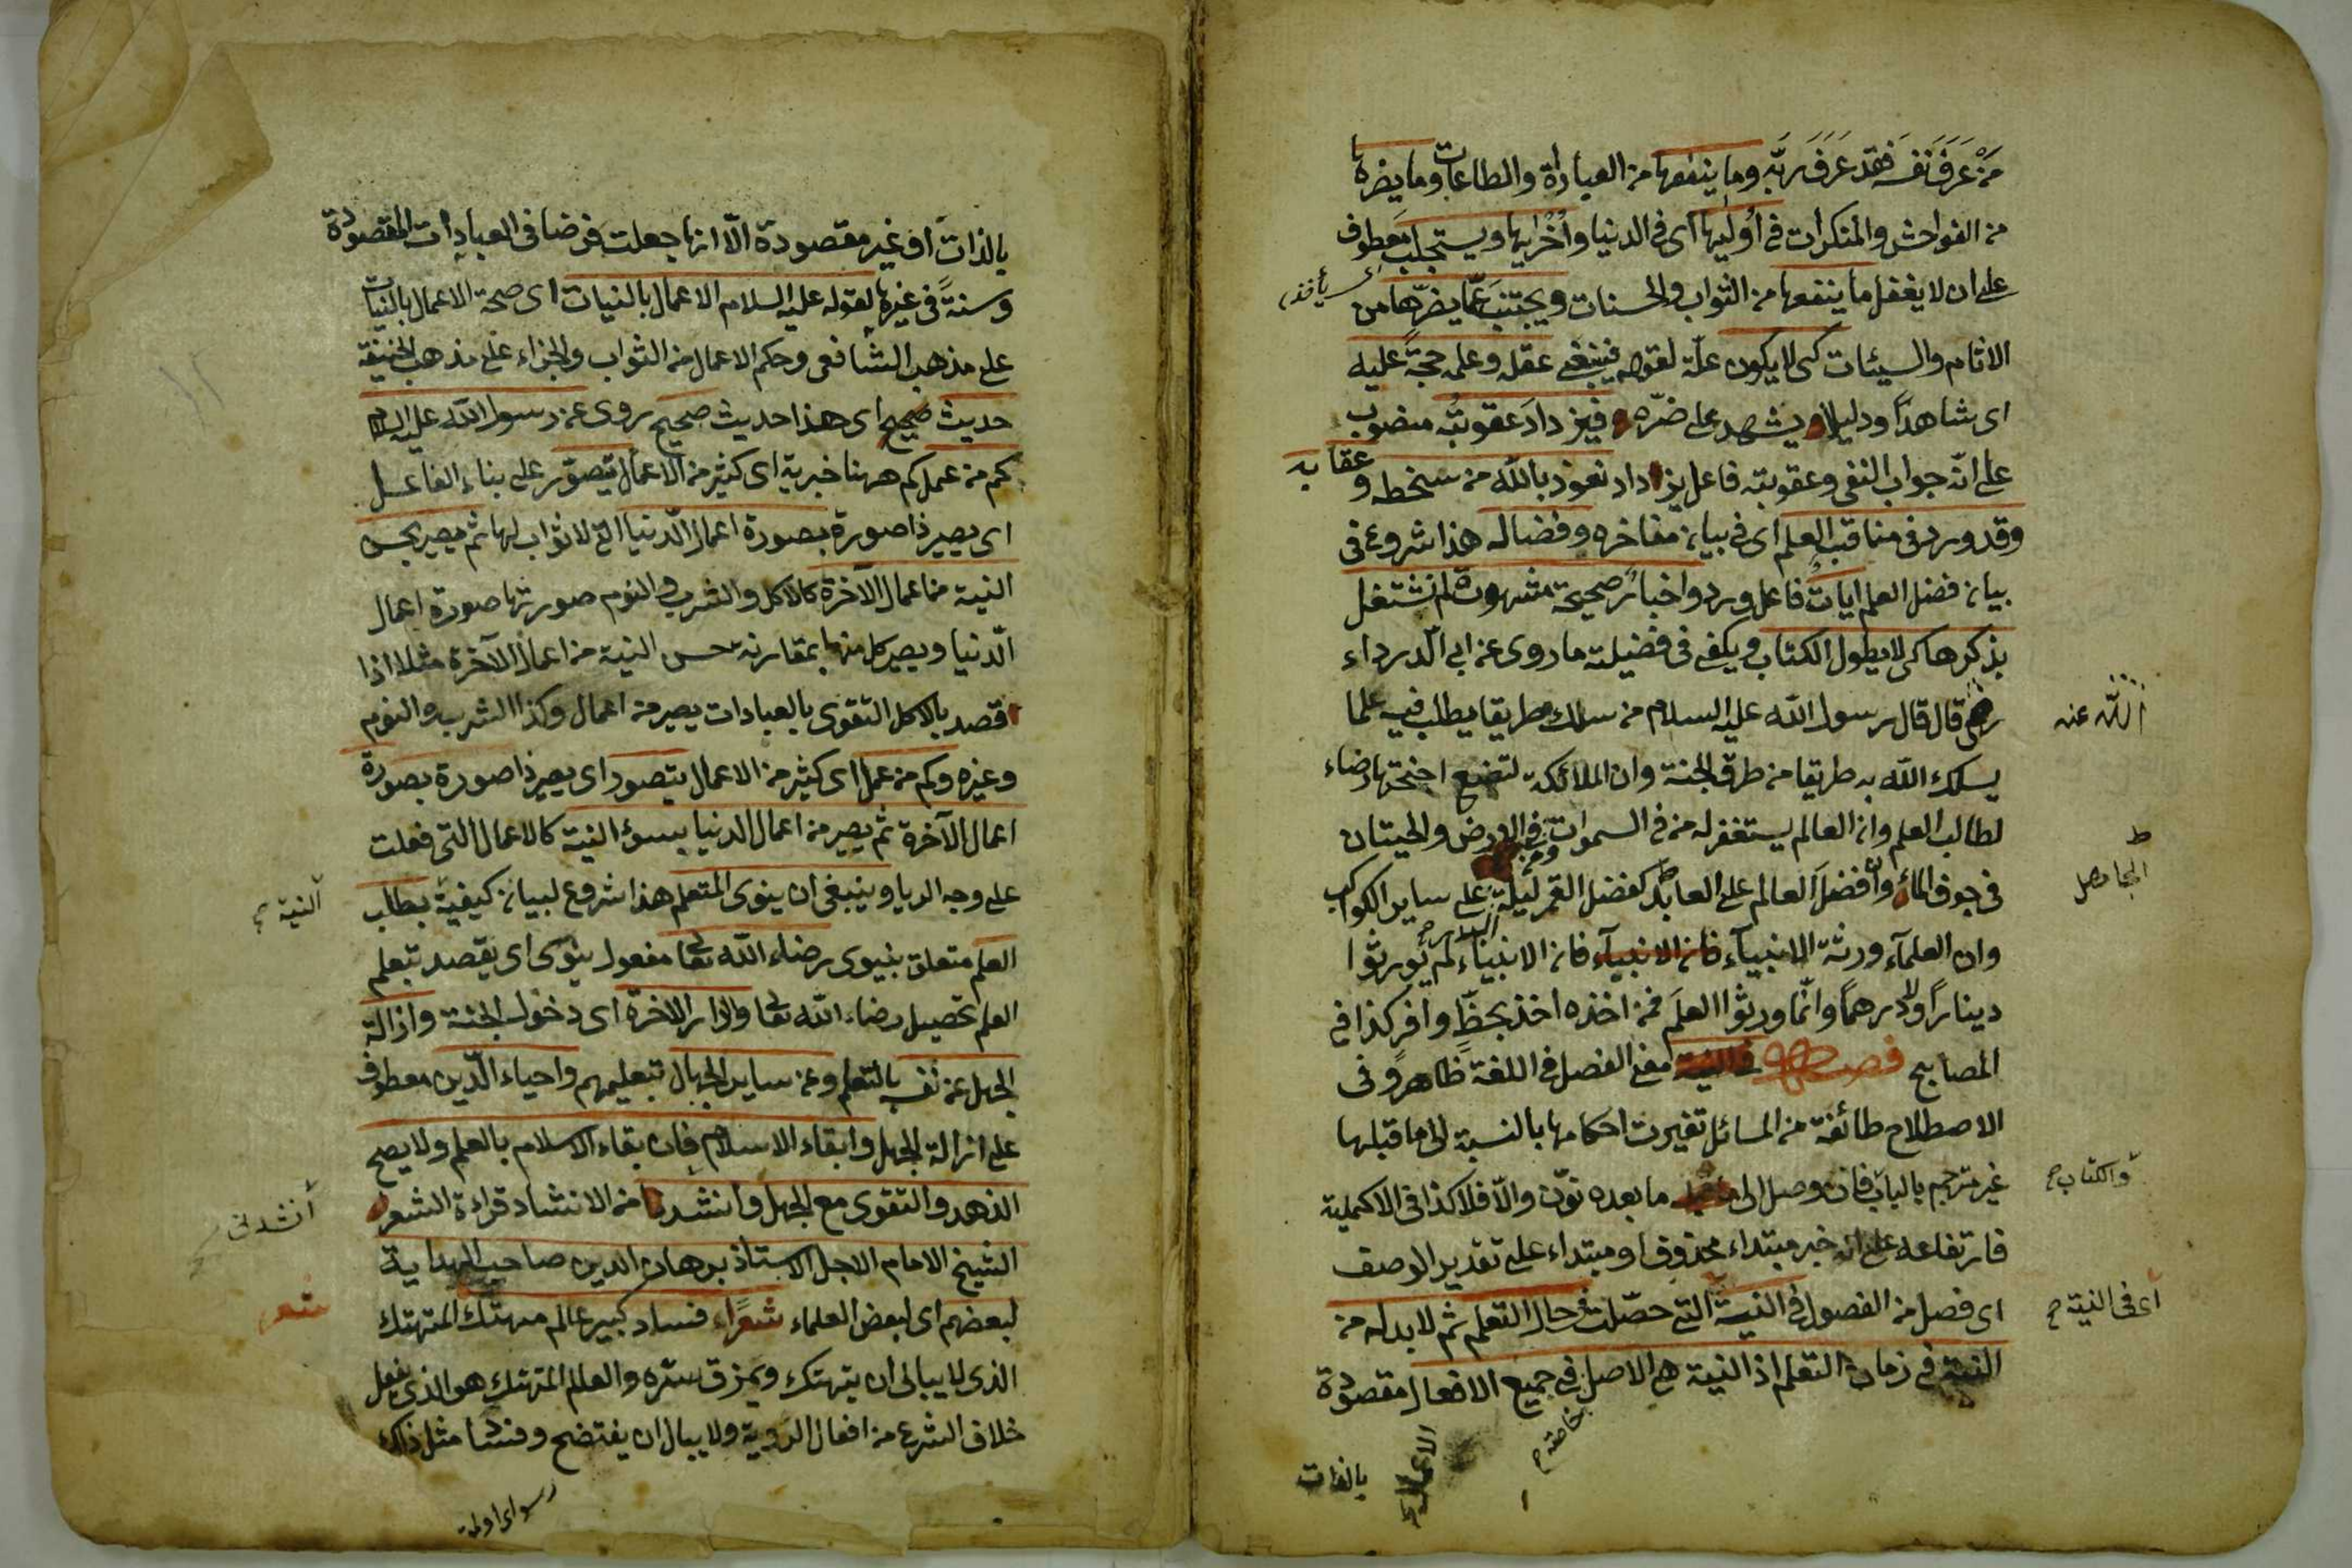 مَنْ عَرَفَ نَفسَه فَقَد عَرَفَ ربّه وما ينفعها من العبادة والطاعات وما يضرها
من الفواحش والمنكرات فى أوليها اى فى الدنيا وأُخْرٰيها ويستجلب معطوف
على ان لا يغفل ما ينفعها من الثواب والحسنات ويجتنب عمّا يضرّها من
الاثام والسيئات كى لا يكون علّة لقوله فينبغى عقله وعلمه حجةً عليه
اى شاهداً ودليلا ويشهد على ضرّه فيزدادَ عقوبتُه منصوب
على انّه جواب النفى وعقوبته فاعل يزداد نعوذ بالله من سخطه و عقابه
وقد ورد فى مناقب العلم اى فى بيان مفاخره وفضاله هذا شروع فى
بيان فضل العلم اياتٌ فاعل ورد واخبارٌ صحيحة مشهورة لم نشتغل
بذكرها كى لا يطول الكتاب ويكفى فى فضيلته ما روى عن ابى الدرداء
رضى قال قال رسول الله عليه السلام من سلك طريقا يطلب فيه علما
الله عنه
يسلك الله به طريقا من طرق الجنة وان الملائكة لتضع اجنحتها رضاء
لطالب العلم وان العالم يستغفر له من فى السموات ومن فى الارض والحيتان
فى جوف الماء وان فضل العالم على العابد كفضل القمر ليلة على ساير الكواكب
وان العلمآء ورثة الانبيآء فان الانبيآء فان الانبياء لم يُورثوا
ديناراً ولا درهماً وانّما ورثوا العلم فمن اخذه اخذ بحظٍّ وافر كذا فى
المصابيح فصل فى النية معنى الفصل فى اللغة ظاهر وفى
الاصطلاح طائفة من المسائل تغيرت احكامها بالنسبة الى ما قبلها
غير مترجم بالباب فان وصل الى ما بعده نوّن والّا فلا كذا فى الاكملية
والكتاب
فارتفاعه على انه خبر مبتداء محذوف او مبتداء على تقدير الوصف
اى فصل من الفصول فى النية التى حصّلت فى حال التعلم ثم لا بد له من
أى فى النية
النية فى زمان التعلم اذ النية هى الاصل فى جميع الافعال مقصودة
خاصة
بالذات
بالذات او غير مقصودة الّا انها جعلت فرضا فى العبادات المقصودة
وسنةً فى غيرها لقوله عليه السلام الاعمال بالنيات اى صحة الاعمال بالنيات
على مذهب الشافعى وحكم الاعمال من الثواب والجزاء على مذهب الحنيفة
حديث صحيح اى هذا حديث صحيح روى عن رسول الله عليه السلام
كم من عمل كم ههنا خبرية اى كثير من الاعمال يتصوّر على بناء الفاعل
اى يصير ذا صورة بصورة اعمال الدنيا التى لا ثواب لها ثم يصير بحسن
النية من اعمال الآخرة كالاكل والشرب والنوم صورتها صورة اعمال
الدنيا ويصير كل منها بمقارنة حسن النية من اعمال الآخرة مثلا اذا
قصد بالاكل التقوى بالعبادات يصير من اعمال وكذا الشرب والنوم
وغيره وكم من عمل اى كثير من الاعمال يتصور اى يصير ذا صورة بصورة
اعمال الآخرة ثم يصير من اعمال الدنيا بسوء النية كالاعمال التى فعلت
على وجه الريا وينبغى ان ينوى المتعلم هذا شروع لبيان كيفية بطلب
النية
العلم متعلق بينوى رضاء الله تعا مفعول ينوى اى يقصد بتعلم
العلم تحصيل رضاء الله تعا والدار الاخرة اى دخول الجنة وازالة
الجهل عن نفسه بالتعلم وعن ساير الجهال بتعليمهم واحياء الدين معطوف
على ازالة الجهل وابقاء الاسلام فان بقاء الاسلام بالعلم ولا يصح
الزهد والتقوى مع الجهل وانشدنا من الانشاد قراءة الشعر
أنشدنى
الشيخ الامام الاجل الاستاذ برهان الدين صاحب الهداية
لبعضهم اى لبعض العلماء شعراً فساد كبير عالم متهتك المتهتك
شعر
الذى لا يبالى ان يتهتك ويمزق ستره والعالم المتهتك هو الذى يفعل
خلاف الشرع من افعال الردية ولا يبال ان يفتضح وفسّا مثل ذلك